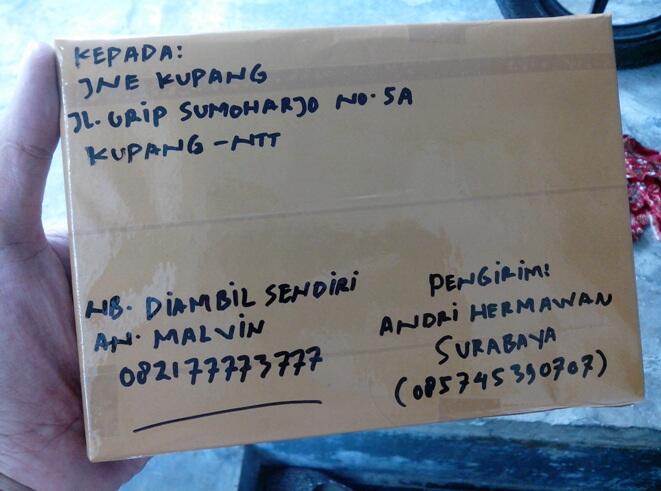 KEPADA:
JNE KUPANG
JL. URIP SUMOHARJO NO. 5A
KUPANG - NTT
NB. DIAMBIL SENDIRI
AN. MALVIN
082177773777
PENGIRIM:
ANDRI HERMAWAN
SURABAYA
(085745390707)